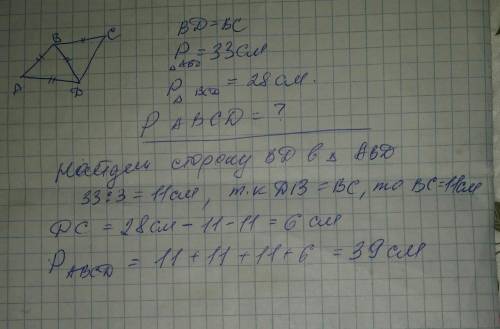 B C
A D
BD = BC
P △ABD = 33см
P △ BCD = 28 см.
P ABCD = ?
Найдем сторону BD в △ ABD
33:3 = 11см, т.к DB = BC, то BC=11см
DC = 28см - 11 - 11 = 6 см
P ABCD = 11 + 11 + 11 + 6 = 39 см